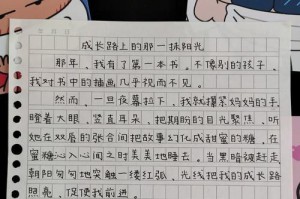 成长路上的那一抹阳光
那年，我有了第一本书。不像别的孩子，
我对书中的插画几乎视而不见。
然而，一旦夜幕拉下，我就攥紧妈妈的手，
瞪着大眼，竖直耳朵，把期盼的目光聚焦，听
她在双唇的张合间把故事幻化成甜蜜的糖，在
蜜糖沁入心间之时美美地睡去。当黑暗被赶走
朝阳匍匐地突触一缕红弧，光线把我的成长路
照亮，促使我前进。